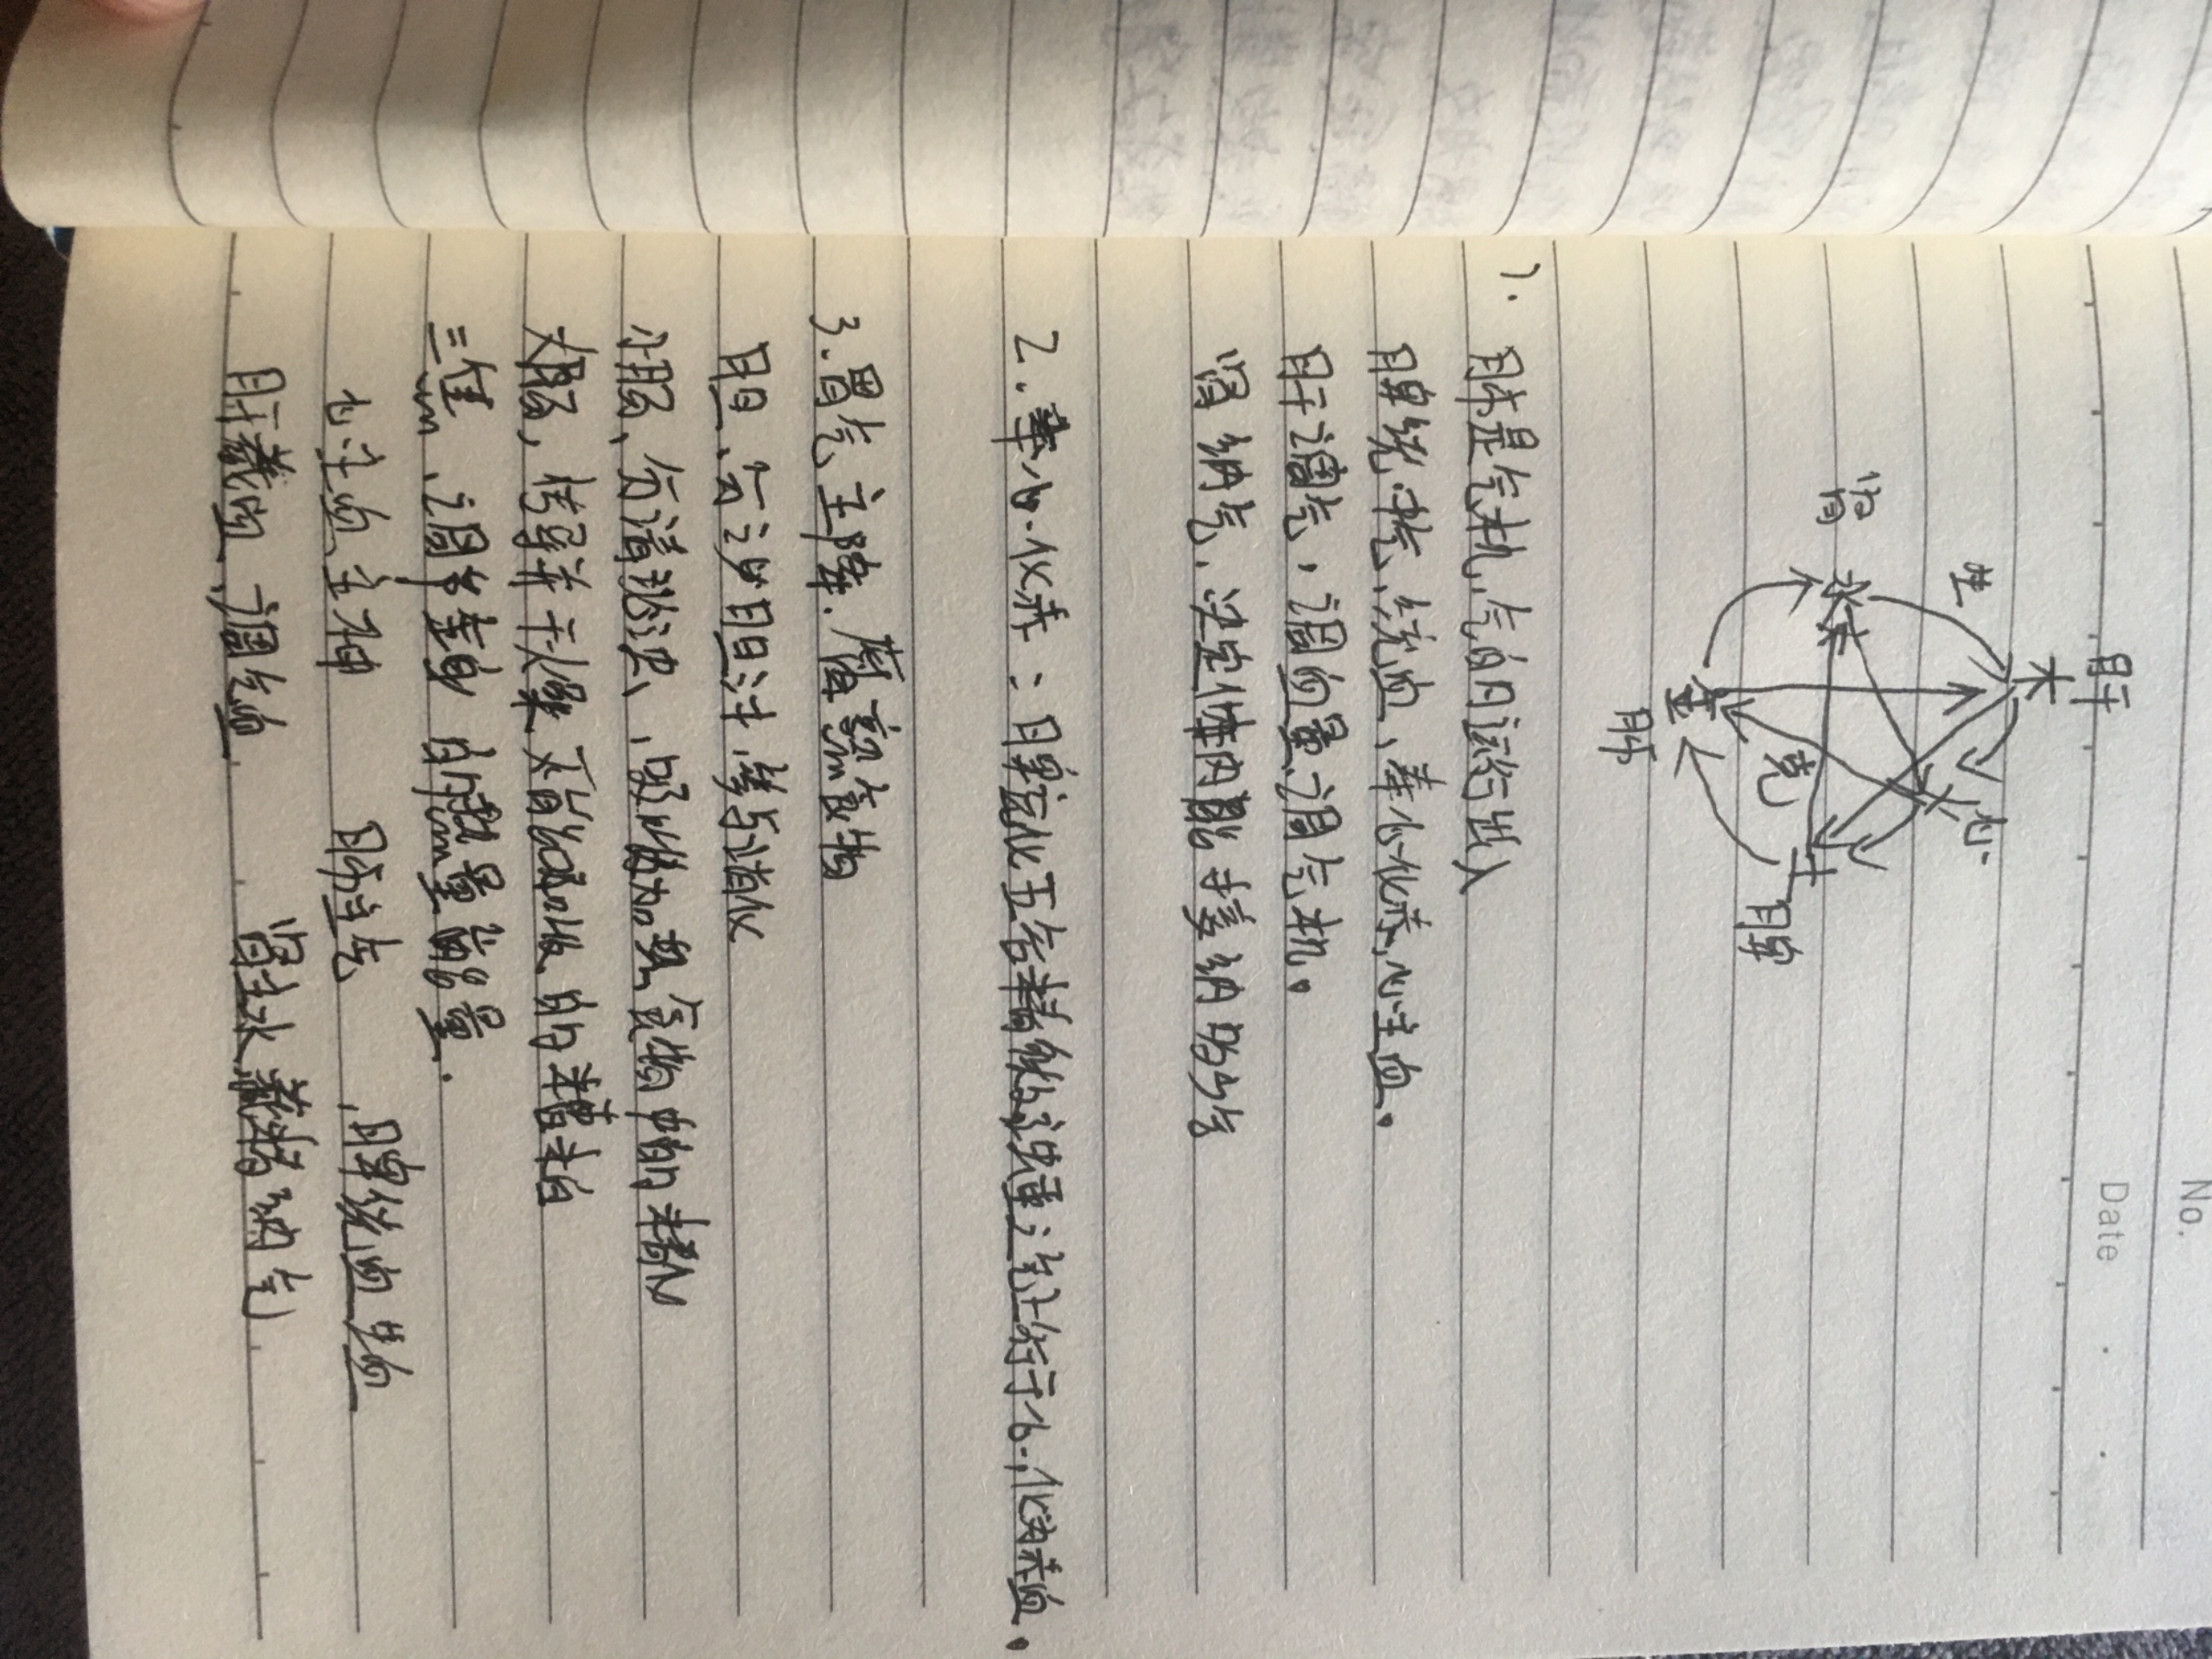 No.
Date
肝
木
生
心
火
肾
水
克
土
脾
金
肺
1. 肺是气机,气的日运行出入
脾统中气、统血、奉心化赤,心主血。
肝调气,调血量、调气机。
肾纳气、决定体内能接纳多少
2. 奉心化赤:脾运化五谷精微,浊重之气上行于心,化为赤血。
3. 胃气主降、腐熟食物
胆、分泌胆汁,参与消化
小肠、分清泌浊、,加热食物中的精
大肠,传导并干燥、不能吸收的糟粕
三焦、调身体的热量能量.
心主血、主神 肺主气 ,脾统血
肝藏血、调血 肾主水藏精纳气